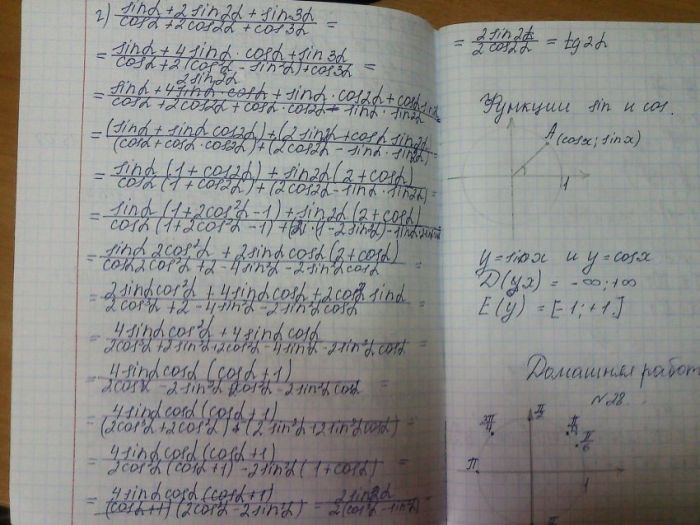 г) (sinα + 2sin2α + sin3α)/(cosα + 2cos2α + cos3α) =
= (sinα + 4sinα·cosα + sin3α)/(cosα + 2(cos²α − sin²α) + cos3α) =
= (sinα + 4sinα·cosα + sinα·cos2α + cosα sin2α)/(cosα + 2cos2α + cosα·cos2α − sinα·sin2α)
2sin2α
= ((sinα + sinα cos2α) + (2sin2α + cosα·sin2α))/((cosα + cosα·cos2α) + (2cos2α − sinα·sin2α)) =
= (sinα(1 + cos2α) + sin2α(2 + cosα))/(cosα(1 + cos2α) + (2cos2α − sinα·sin2α)) =
= (sinα(1 + 2cos²α − 1) + sin2α(2 + cosα))/(cosα(1 + 2cos²α − 1) + (2·(1 − 2sin²α) −
= (sinα 2cos²α + 2sinα cosα(2 + cosα))/(cosα 2cos²α + 2 − 4sin²α − 2sin²α cosα) =
= (2sinα cos²α + 4sinα cosα + 2cos²α sinα)/(2cos³α + 2 − 4sin²α − 2sin²α cosα) =
= (4sinα cos²α + 4sinα cosα)/(2cos³α + 2sin²α + 2cos²α − 4sin²α − 2sin²α cosα) =
= (4sinα cosα(cosα + 1))/(2cos³α − 2sin²α + 2cos²α − 2sin²α cosα) =
= (4sinα cosα(cosα + 1))/((2cos³α + 2cos²α) + (2sin²α + 2sin²α cosα)) =
= (4sinα cosα(cosα + 1))/(2cos²α(cosα + 1) − 2sin²α(1 + cosα)) =
= (4sinα cosα(cosα + 1))/((cosα + 1)(2cos²α − 2sin²α)) = (2sin2α)/(2(cos²α − sin²α)) =
= (2sin2α)/(2cos2α) = tg2α
Функции sin и cos.
A(cosx; sinx)
1
y = sinx и y = cosx
D(yx) = −∞; +∞
E(y) = [−1; +1]
Домашняя работ
№28.
π/2
π
π/6
1